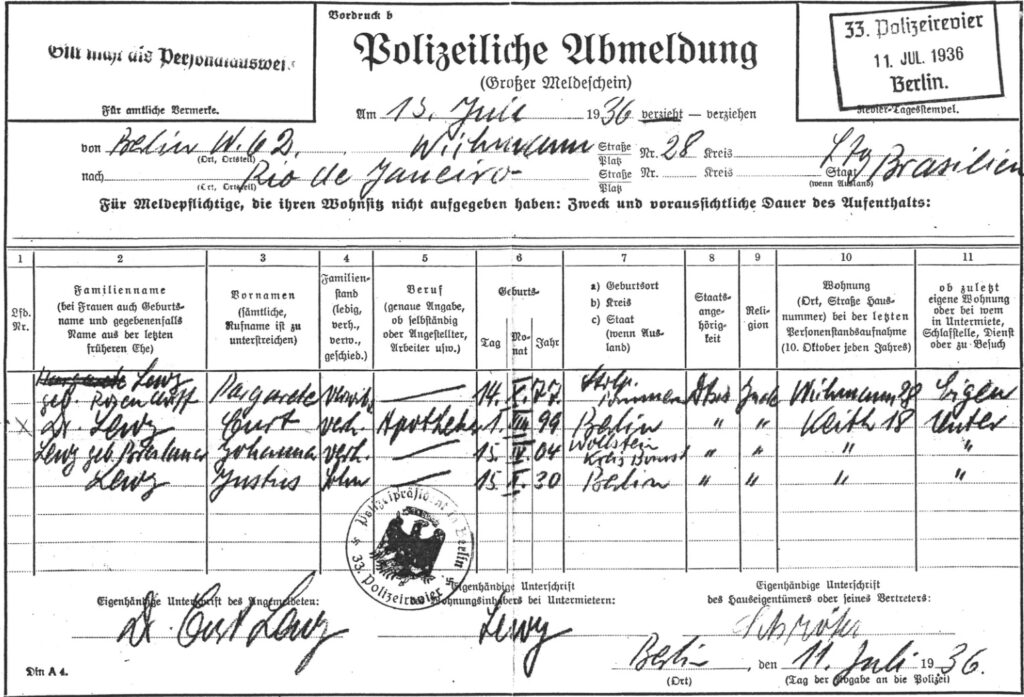 Vordruck b
Gilt nicht als Personalausweis
Für amtliche Vermerke.
Polizeiliche Abmeldung
(Großer Meldeschein)
33. Polizeirevier
11 JUL. 1936
Berlin.
Revier-Tagesstempel.
Am 15. Juli 1936 verzieht — verziehen
von Berlin W. 62. Straße Platz Nr. 28 Kreis
(Ort, Ortsteil)
nach Rio de Janeiro Straße Platz Nr. Kreis Staat Brasilien
(Ort, Ortsteil) (wenn Ausland)
Für Meldepflichtige, die ihren Wohnsitz nicht aufgegeben haben: Zweck und voraussichtliche Dauer des Aufenthalts:
1 2 3 4 5 6 7 8 9 10 11
Lfd. Nr.
Familienname
(bei Frauen auch Geburts-
name und gegebenenfalls
Name aus der letzten
früheren Ehe)
Vornamen
(sämtliche,
Rufname ist zu
unterstreichen)
Familien-
stand
(ledig,
verh.,
verw.,
geschied.)
Beruf
(genaue Angabe,
ob selbständig
oder Angestellter,
Arbeiter usw.)
Geburts-
Tag Mo-nat Jahr
a) Geburtsort
b) Kreis
c) Staat
(wenn Aus-
land)
Staats-
ange-
hörig-
keit
Reli-
gion
Wohnung
(Ort, Straße Haus-
nummer) bei der letzten
Personenstandsaufnahme
(10. Oktober jeden Jahres)
ob zuletzt
eigene Wohnung
oder bei wem
in Untermiete,
Schlafstelle, Dienst
oder zu Besuch
Lewy Margarete — 14. 77 28 Eigen
geb.
Dr. Lewy Curt verh. Apotheker 1. VIII 99 Berlin " " Keith 18 Unter
Lewy geb. Johanna verh. — 15. IV 04 Wollstein Kreis Bomst " " " "
Lewy Justus Sohn — 15 30 Berlin " " " "
Polizeipräsident in Berlin
33. Polizeirevier
Eigenhändige Unterschrift des Angemeldeten:
Dr. Curt Lewy
Eigenhändige Unterschrift
des Wohnungsinhabers bei Untermietern:
Lewy
Eigenhändige Unterschrift
des Hauseigentümers oder seines Vertreters:
Berlin, den 11. Juli 1936.
(Ort) (Tag der Abgabe an die Polizei)
Din A 4.